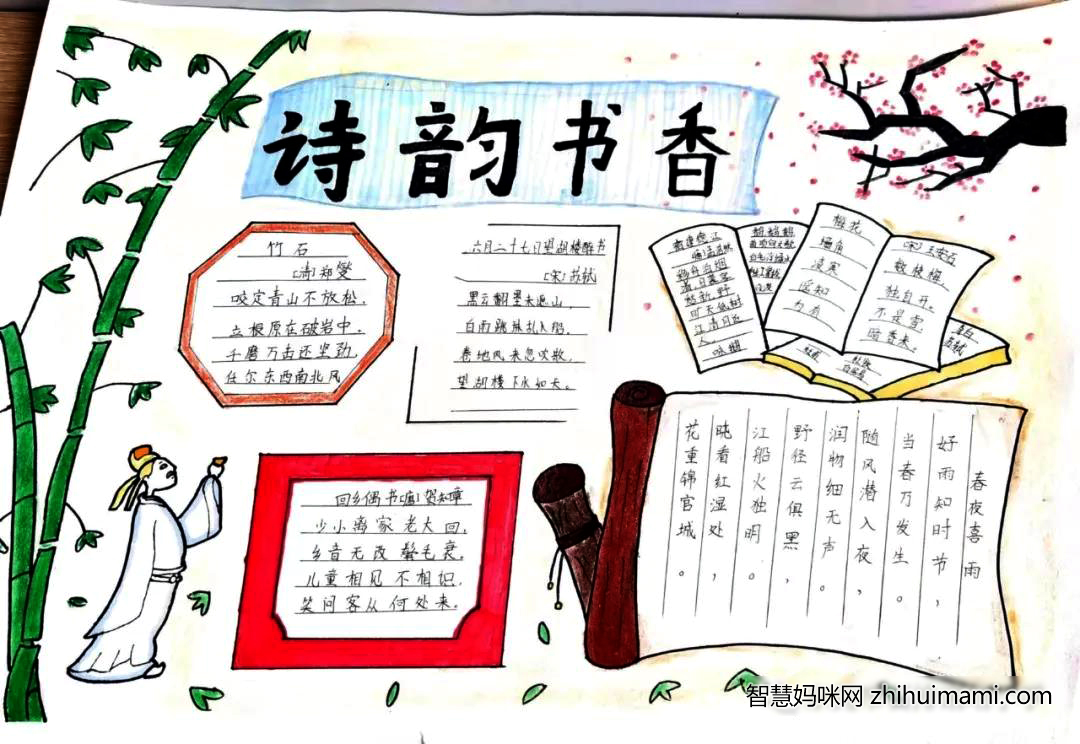 诗韵书香
竹石
(清)郑燮
咬定青山不放松，
立根原在破岩中。
千磨万击还坚劲，
任尔东西南北风
六月二十七日望湖楼醉书
(宋)苏轼
黑云翻墨未遮山，
白雨跳珠乱入船。
卷地风来忽吹散，
望湖楼下水如天。
宿建德江
移舟泊烟
渚，日暮客
愁新。野
旷天低树
江清月近
人。
梅花
(宋)王安石
墙角
数枝梅，
凌寒
独自开。
遥知
不是雪，
为有
暗香来。
回乡偶书(唐)贺知章
少小离家老大回，
乡音无改鬓毛衰。
儿童相见不相识，
笑问客从何处来。
春夜喜雨
好雨知时节，
当春乃发生。
随风潜入夜，
润物细无声。
野径云俱黑，
江船火独明。
晓看红湿处，
花重锦官城。
智慧妈咪网 zhihuimami.com